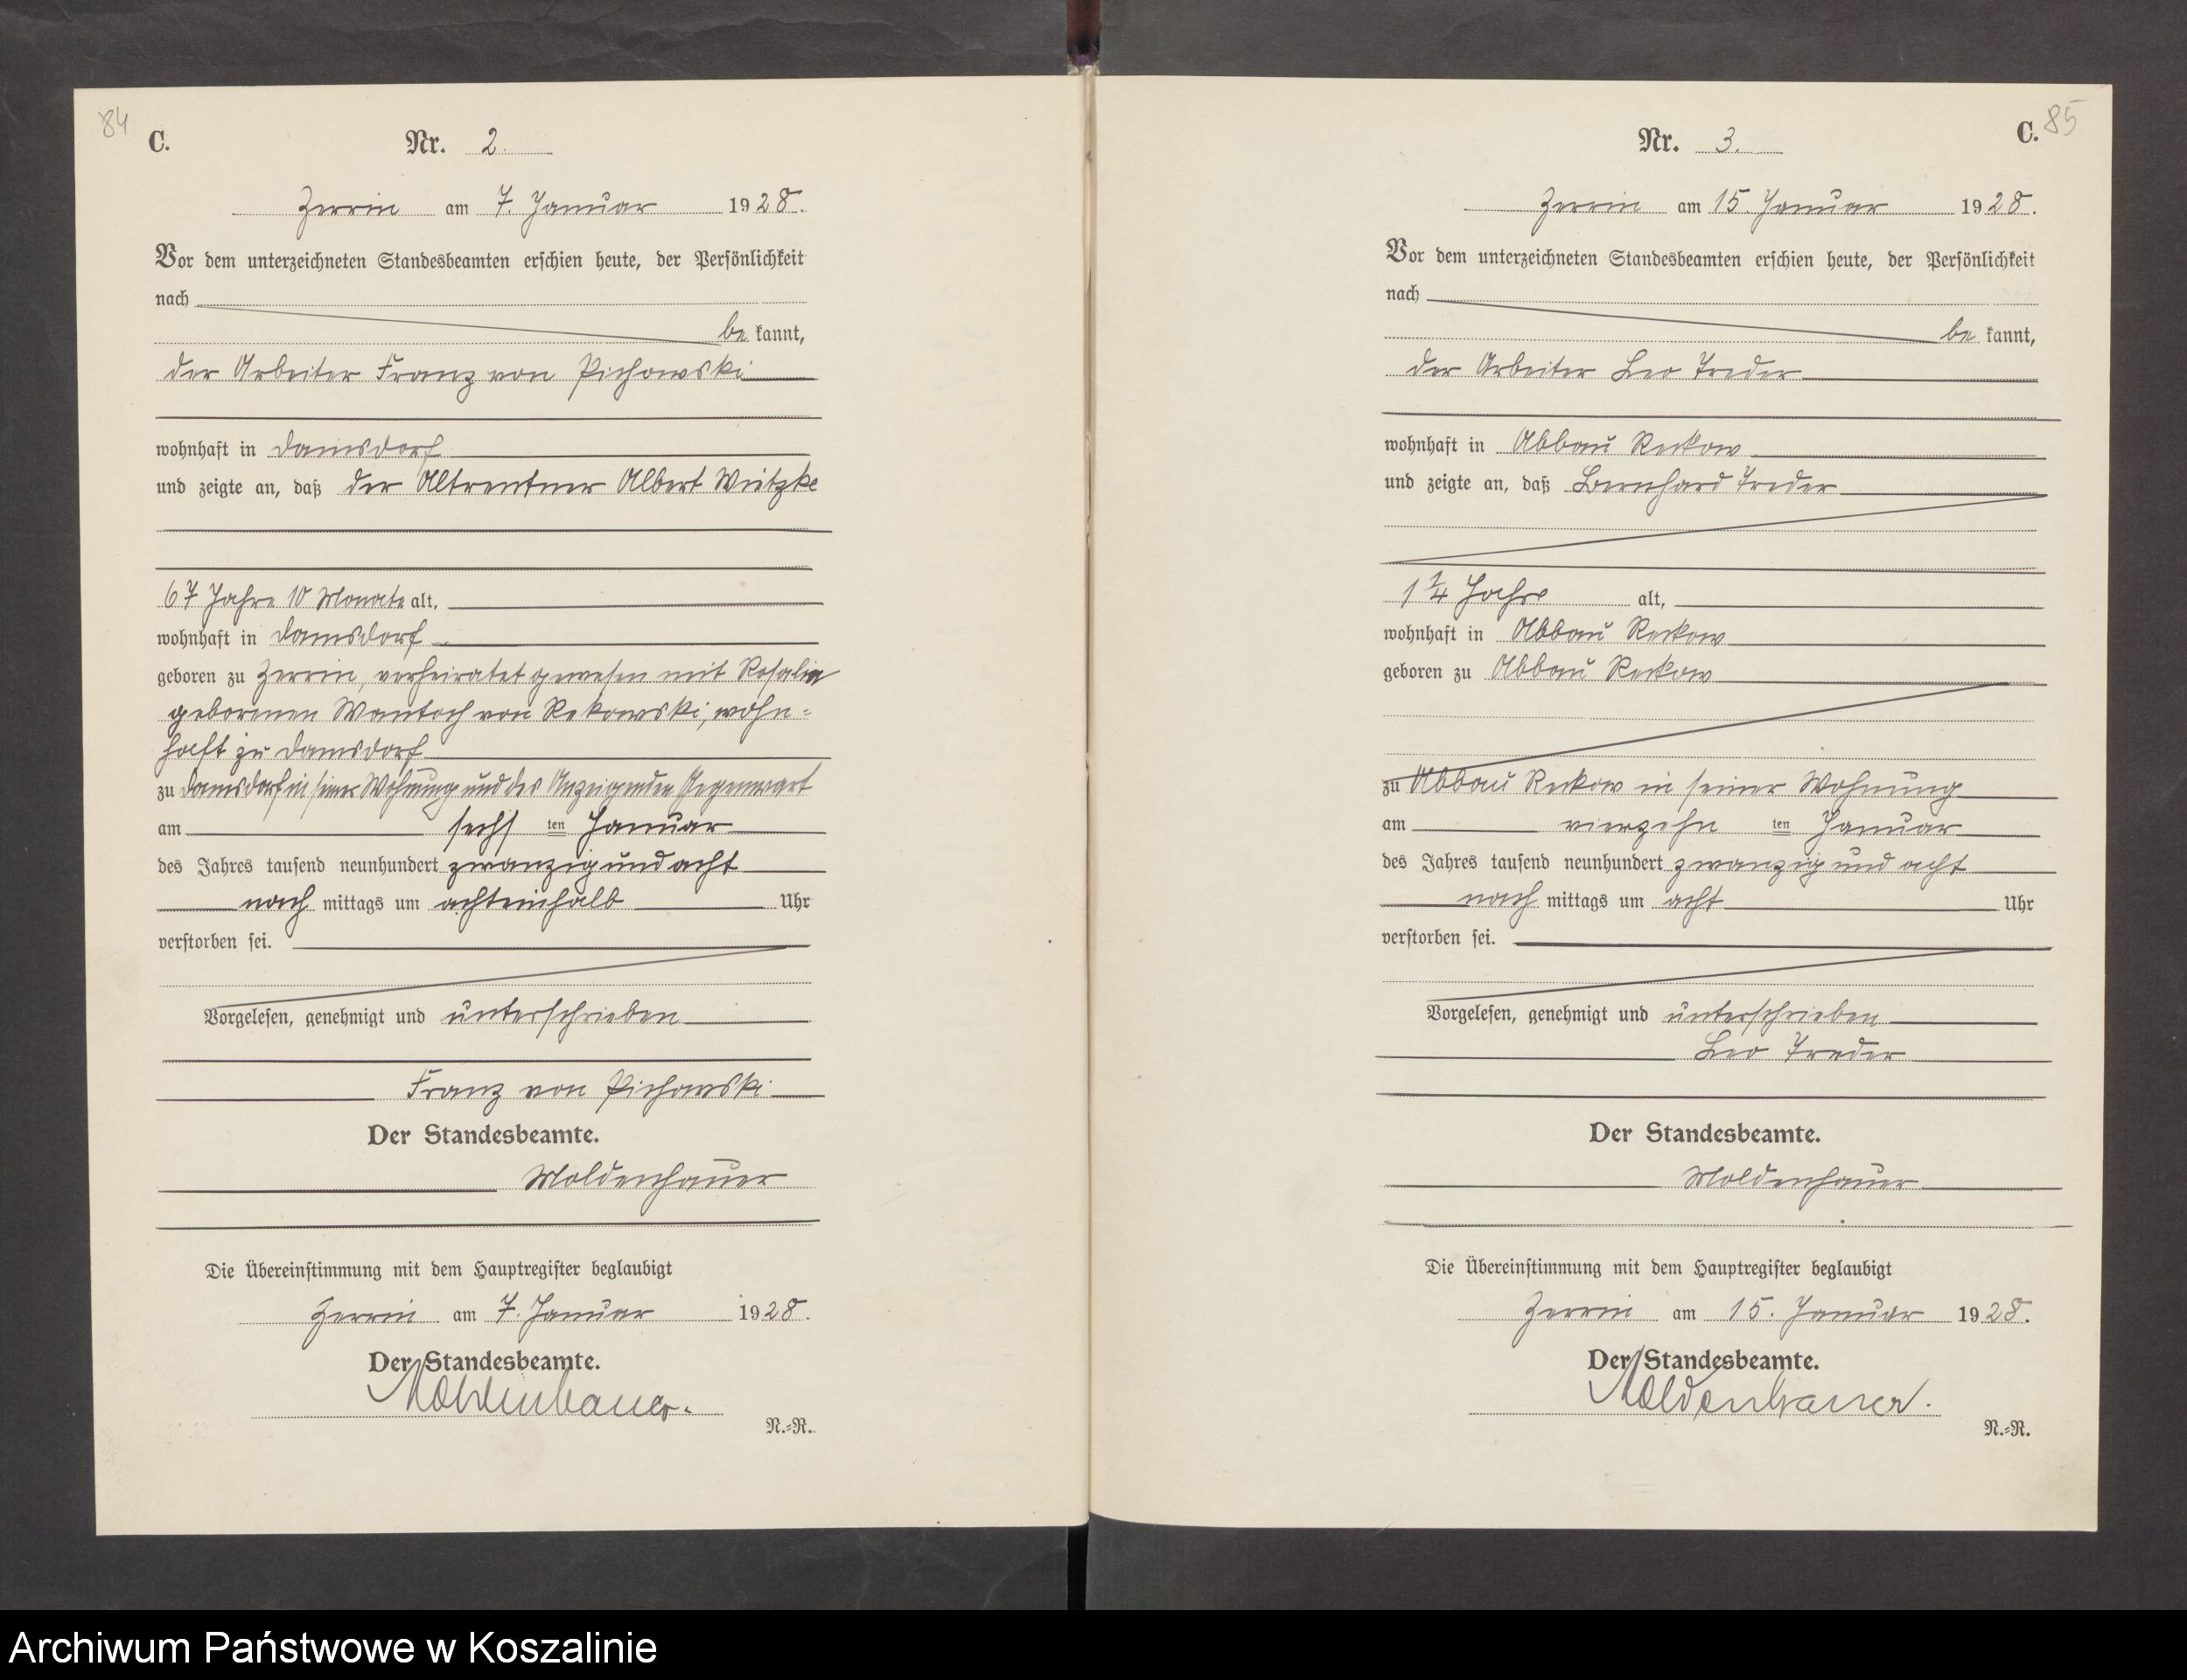 84
C.
Nr. 2.
Zerrin am 7. Januar 1928.
Vor dem unterzeichneten Standesbeamten erschien heute, der Persönlichkeit
nach
be kannt,
der Arbeiter Franz von Pichowski
wohnhaft in Damsdorf
und zeigte an, daß der Altrentner Albert Wützke
67 Jahre 10 Monate alt,
wohnhaft in Damsdorf
geboren zu Zerrin, verheiratet gewesen mit Rosalie
geborenen Wantoch von Rekowski, wohn=
haft zu Damsdorf
zu Damsdorf in seiner Wohnung und des Anzeigenden Gegenwart
am sechs ten Januar
des Jahres tausend neunhundert zwanzig und acht
nach mittags um achteinhalb Uhr
verstorben sei.
Vorgelesen, genehmigt und unterschrieben
Franz von Pichowski
Der Standesbeamte.
Moldenhauer
Die Übereinstimmung mit dem Hauptregister beglaubigt
Zerrin am 7. Januar 1928.
Der Standesbeamte.
Moldenhauer.
N.=R.
85
C.
Nr. 3.
Zerrin am 15. Januar 1928.
Vor dem unterzeichneten Standesbeamten erschien heute, der Persönlichkeit
nach
be kannt,
der Arbeiter Leo Treder
wohnhaft in Abbau Reckow
und zeigte an, daß Bernhard Treder
1 1/4 Jahre alt,
wohnhaft in Abbau Reckow
geboren zu Abbau Reckow
zu Abbau Reckow in seiner Wohnung
am vierzehn ten Januar
des Jahres tausend neunhundert zwanzig und acht
nach mittags um acht Uhr
verstorben sei.
Vorgelesen, genehmigt und unterschrieben
Leo Treder
Der Standesbeamte.
Moldenhauer
Die Übereinstimmung mit dem Hauptregister beglaubigt
Zerrin am 15. Januar 1928.
Der Standesbeamte.
Moldenhauer.
N.=R.
Archiwum Państwowe w Koszalinie